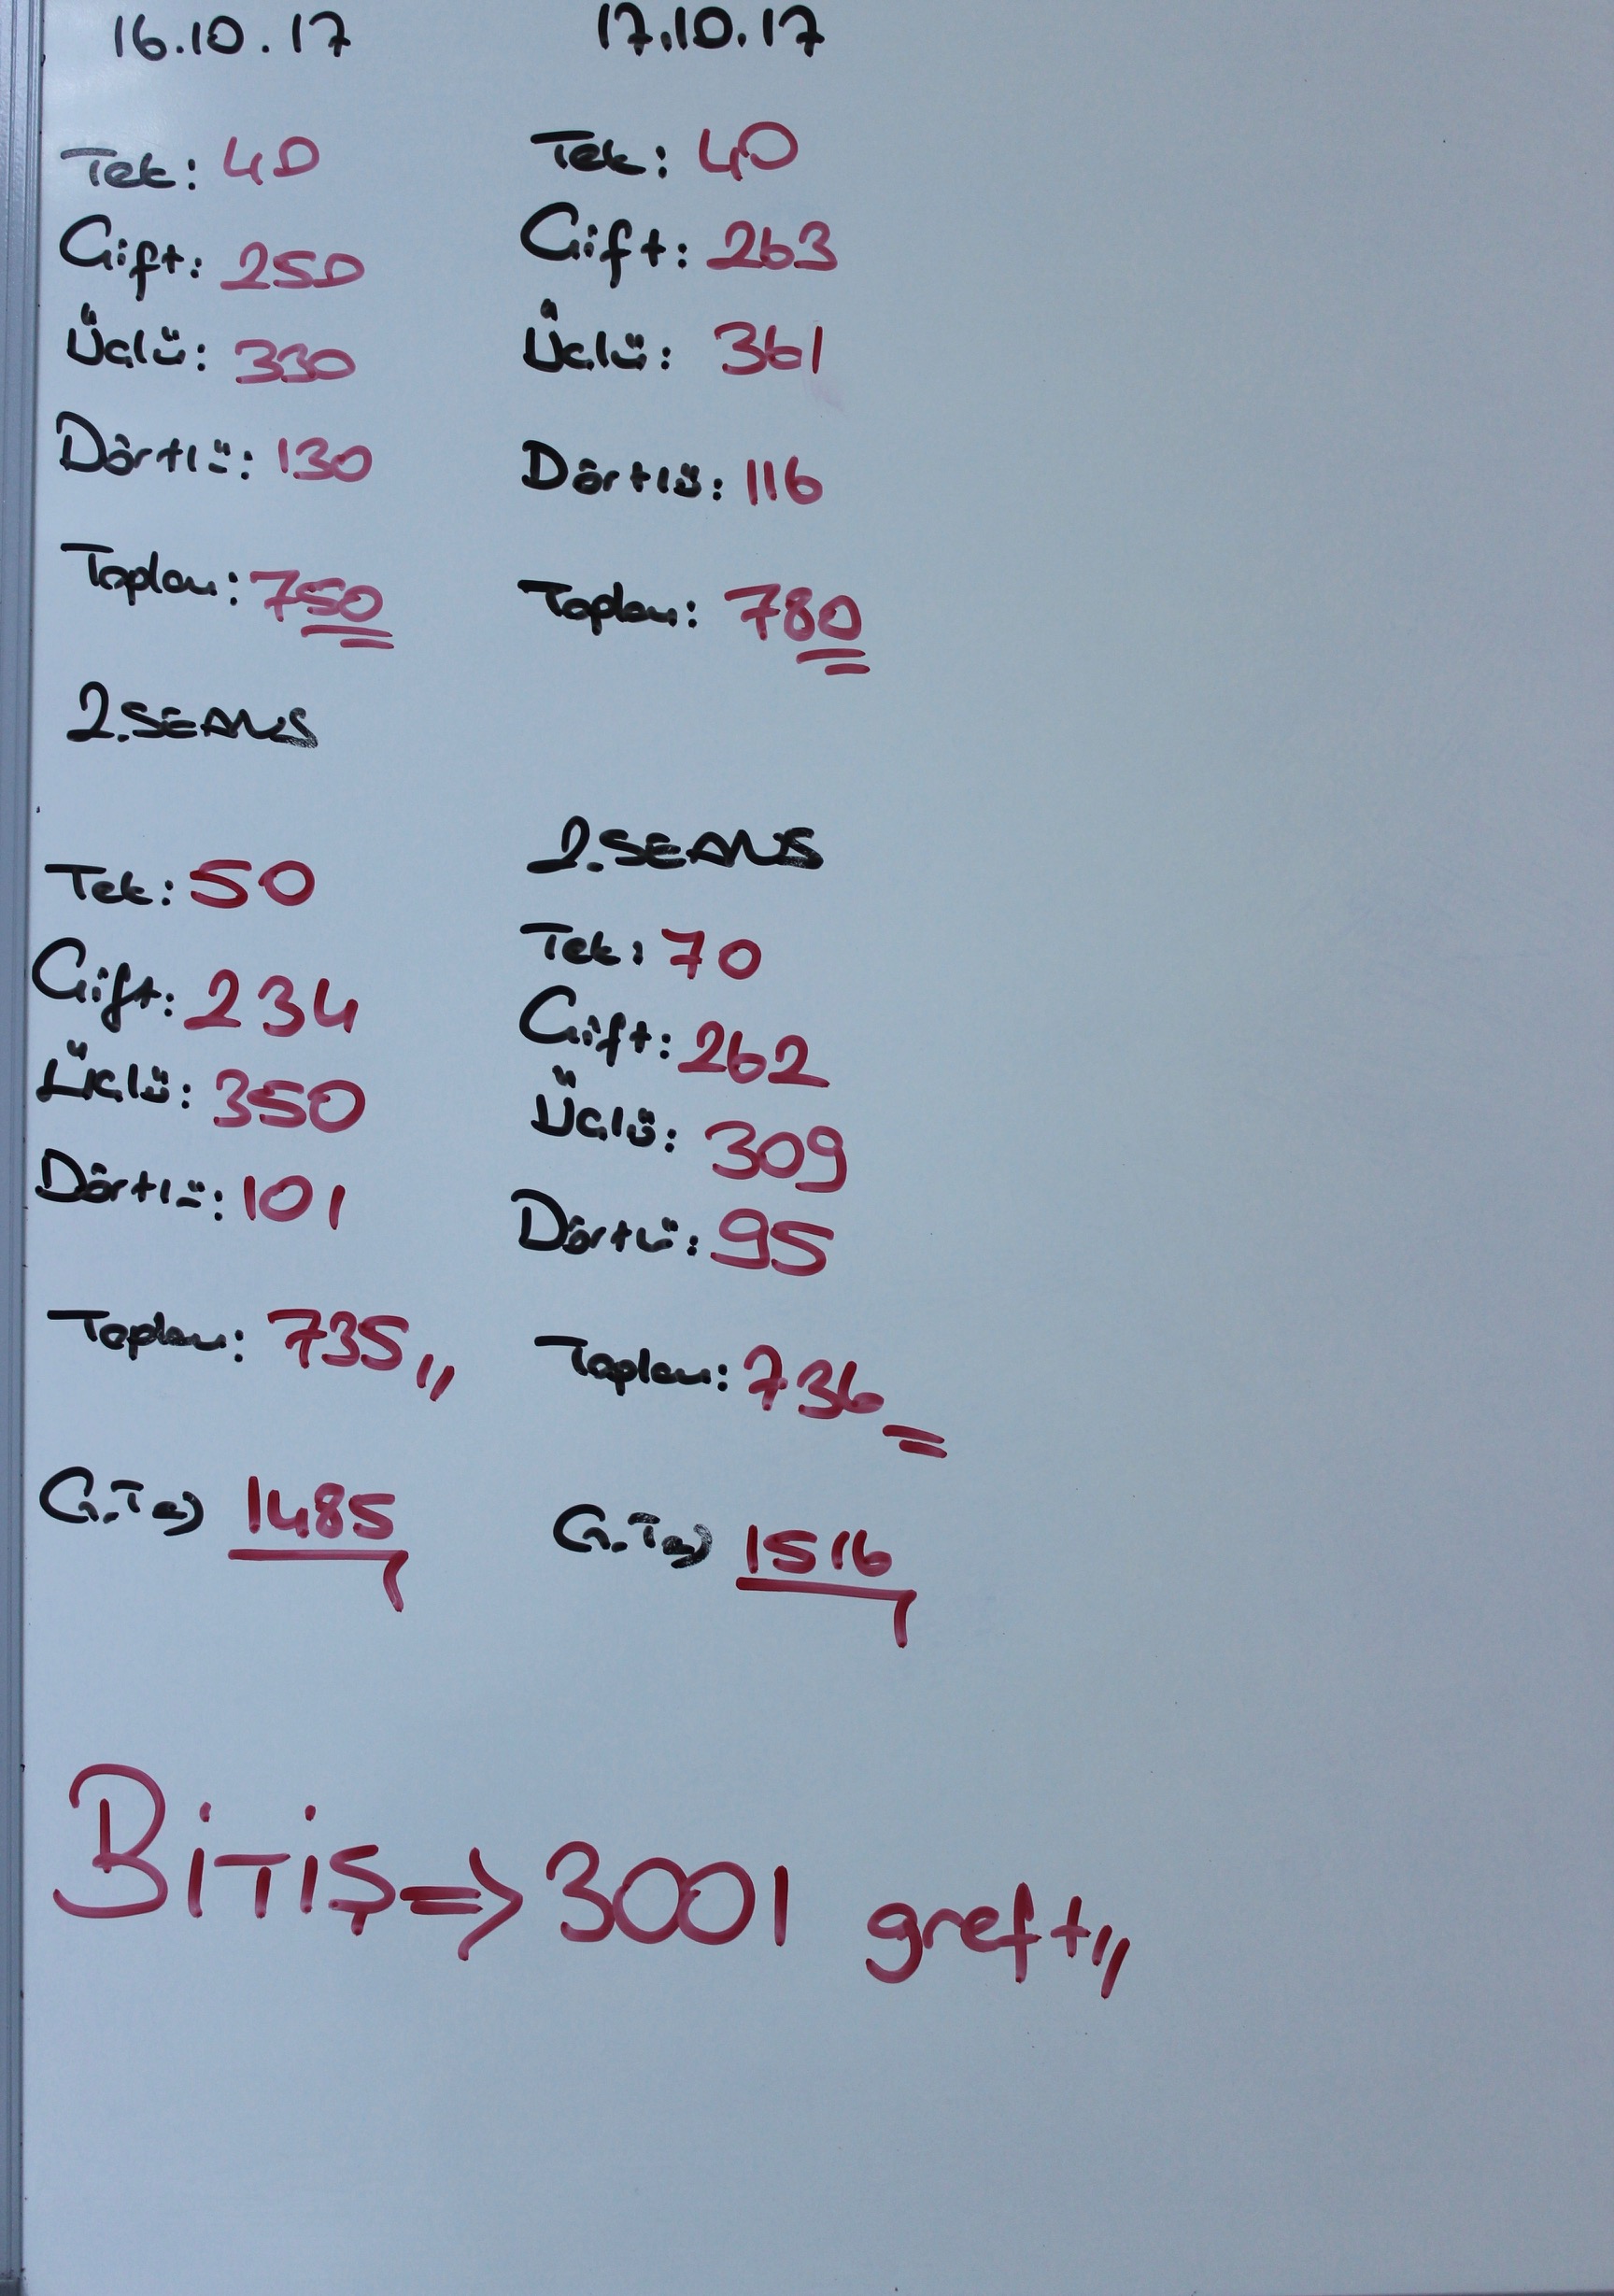 16.10.17
Tek: 40
Çift: 250
Üçlü: 330
Dörtlü: 130
Toplam: 750
2.SEANS
Tek: 50
Çift: 234
Üçlü: 350
Dörtlü: 101
Toplam: 735
G.T => 1485
17.10.17
Tek: 40
Çift: 263
Üçlü: 361
Dörtlü: 116
Toplam: 780
2.SEANS
Tek: 70
Çift: 262
Üçlü: 309
Dörtlü: 95
Toplam: 736
G.T => 1516
BİTİŞ => 3001 greft